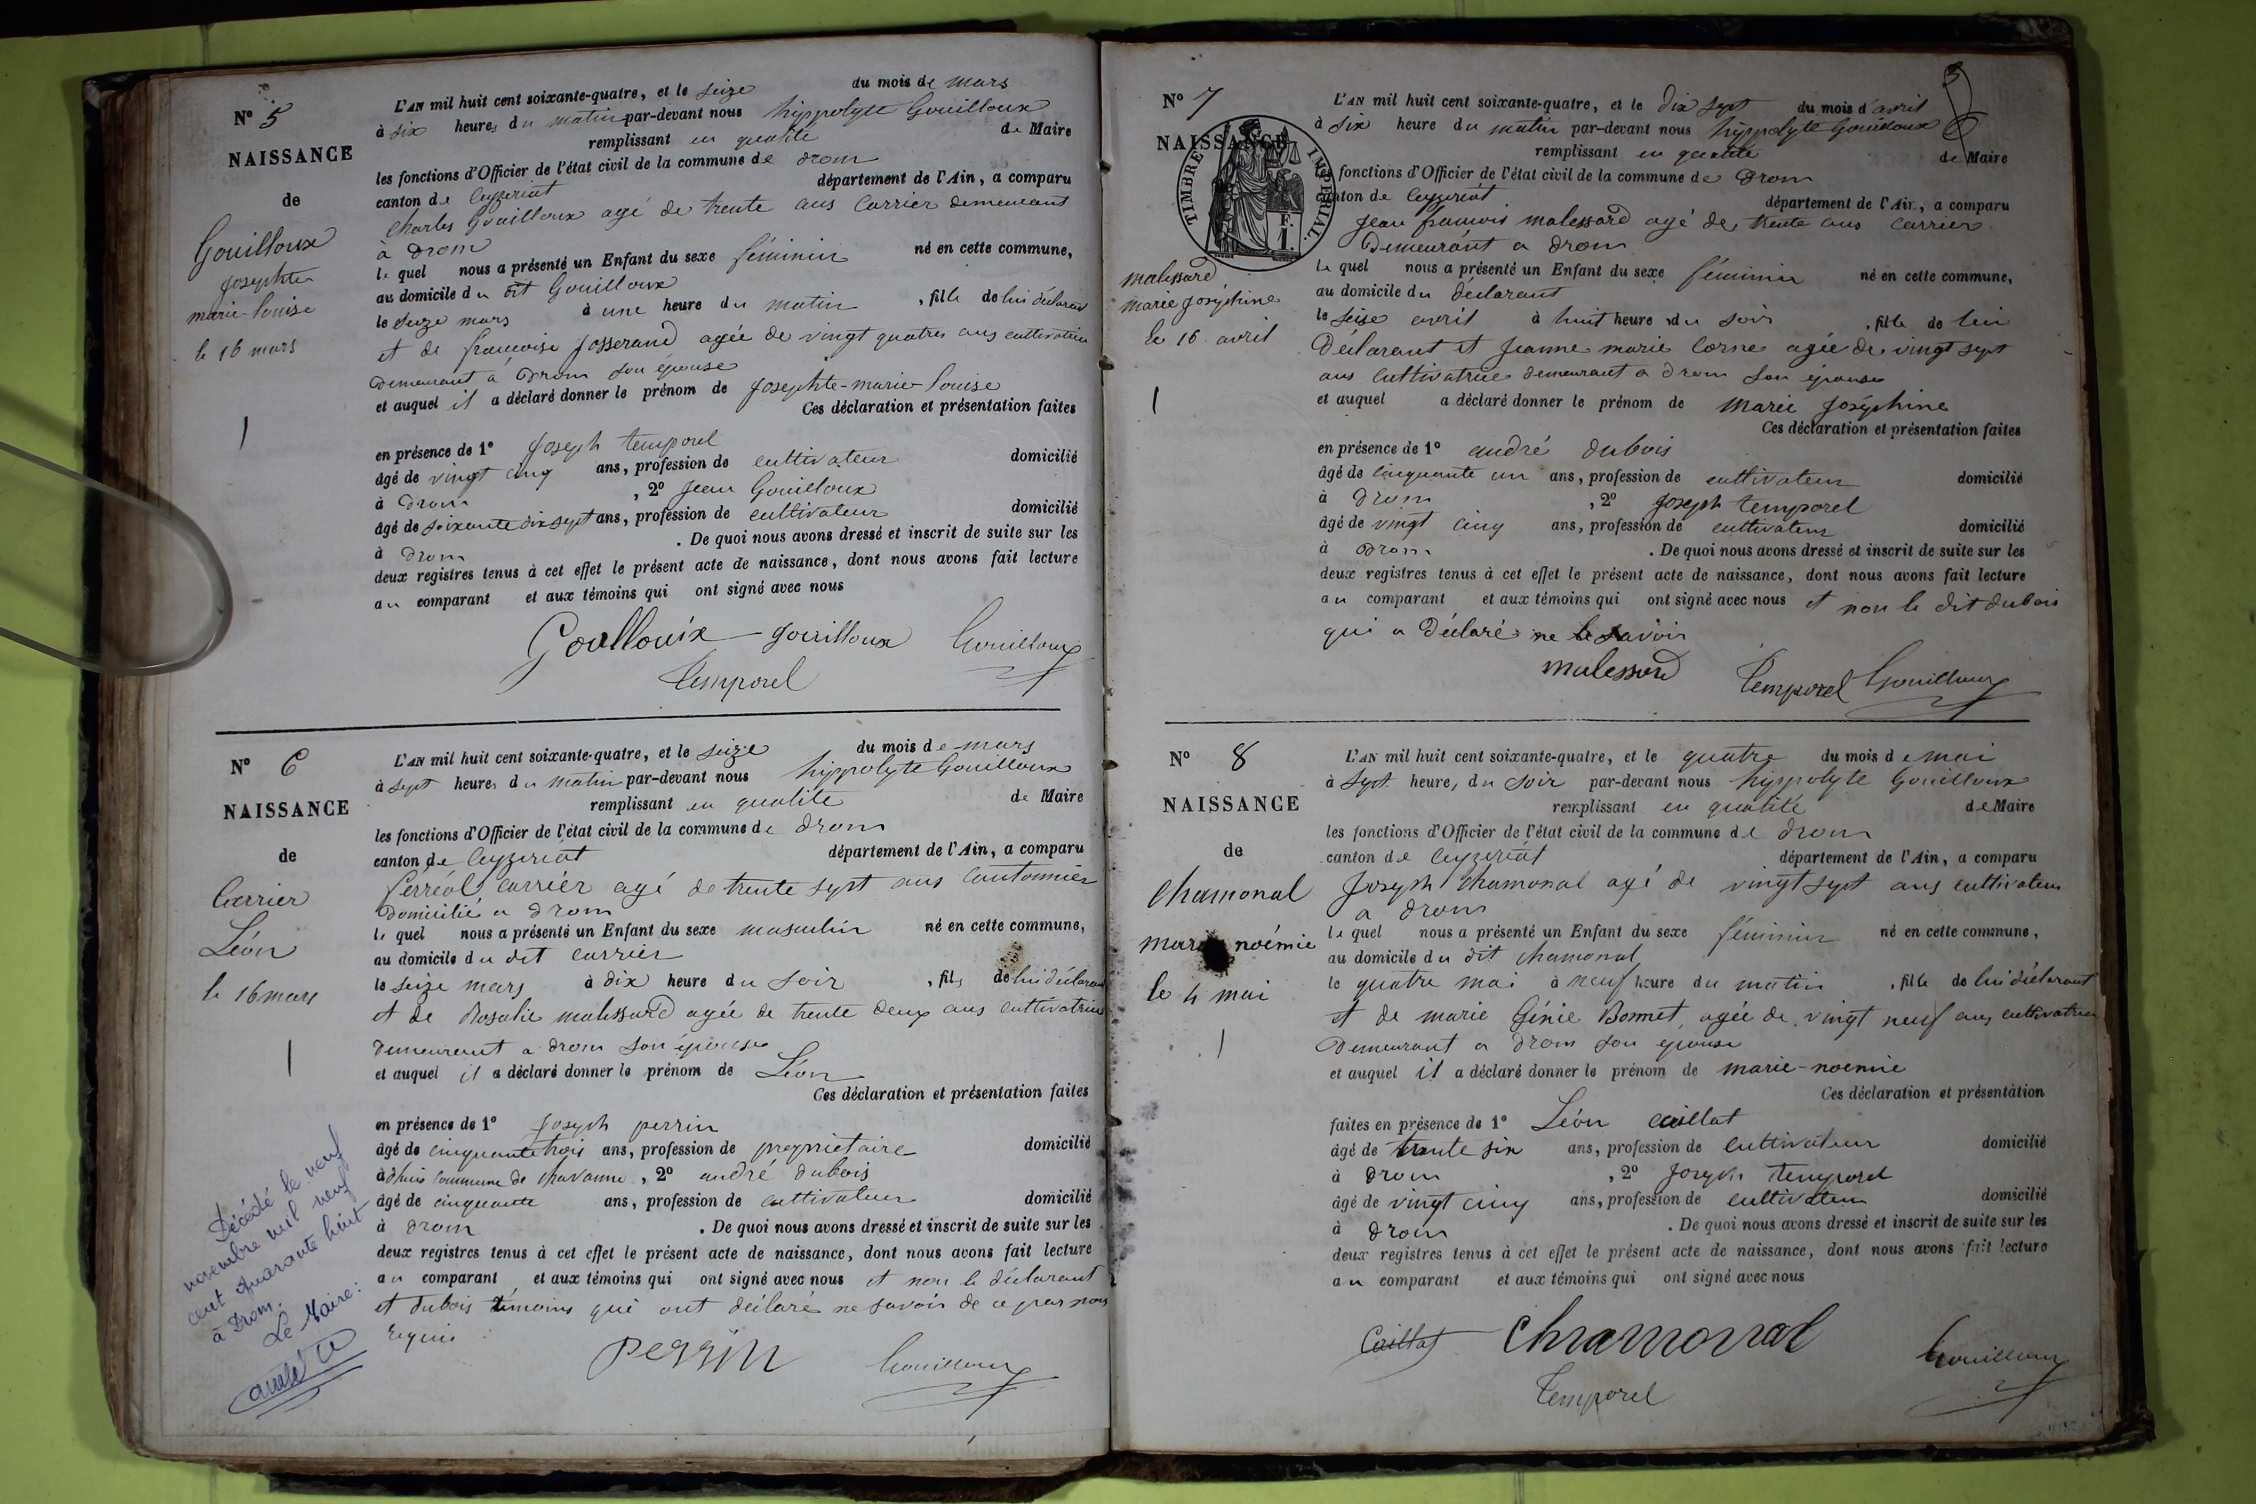 N° 5
NAISSANCE
de
Gouilloux
josephte
marie-louise
le 16 mars
1
L'AN mil huit cent soixante-quatre, et le seize du mois de mars
à six heures du matin par-devant nous hippolyte Gouilloux
remplissant en qualité de Maire
les fonctions d'Officier de l'état civil de la commune de drom
canton de ceyzeriat département de l'Ain, a comparu
Charles Gouilloux agé de trente ans carrier demeurant
à drom
le quel nous a présenté un Enfant du sexe féminin né en cette commune,
au domicile du dit Gouilloux
le seize mars à une heure du matin , fille de lui déclarant
et de francoise josserand agée de vingt quatres ans cultivatrice
demeurant à drom son épouse
et auquel il a déclaré donner le prénom de josephte-marie-louise
Ces déclaration et présentation faites
en présence de 1° joseph temporel
âgé de vingt cinq ans, profession de cultivateur domicilié
à drom , 2° jean Gouilloux
âgé de soixante dix sept ans, profession de cultivateur domicilié
à drom . De quoi nous avons dressé et inscrit de suite sur les
deux registres tenus à cet effet le présent acte de naissance, dont nous avons fait lecture
au comparant et aux témoins qui ont signé avec nous
Goullouix gouilloux Gouilloux
temporel
N° 6
NAISSANCE
de
Carrier
Léon
le 16 mars
1
L'AN mil huit cent soixante-quatre, et le seize du mois de mars
à sept heures du matin par-devant nous hippolyte Gouilloux
remplissant en qualité de Maire
les fonctions d'Officier de l'état civil de la commune de drom
canton de ceyzeriat département de l'Ain, a comparu
ferréol carrier agé de trente sept ans cantonnier
domicilié a drom
le quel nous a présenté un Enfant du sexe masculin né en cette commune,
au domicile du dit carrier
le seize mars à dix heure du soir , fils de lui déclarant
et de Rosalie malessard agée de trente deux ans cultivatrice
demeurant a drom son épouse
et auquel il a déclaré donner le prénom de Léon
Ces déclaration et présentation faites
en présence de 1° joseph perrin
âgé de cinquante trois ans, profession de propriétaire domicilié
à dhuis commune de chavanne , 2° andré dubois
âgé de cinquante ans, profession de cultivateur domicilié
à drom . De quoi nous avons dressé et inscrit de suite sur les
deux registres tenus à cet effet le présent acte de naissance, dont nous avons fait lecture
au comparant et aux témoins qui ont signé avec nous et non le déclarant
et dubois témoins qui ont déclaré ne savoir de ce par nous
requis
perrin Gouilloux
Décédé le neuf
novembre mil neuf
cent quarante huit
à Drom.
Le Maire:
N° 7
NAISSANCE
TIMBRE IMPÉRIAL.
F.
1.
malessard
marie joséphine
le 16 avril
1
L'AN mil huit cent soixante-quatre, et le dix sept du mois d'avril
à six heure du matin par-devant nous hippolyte Gouilloux
remplissant en qualité de Maire
les fonctions d'Officier de l'état civil de la commune de drom
canton de ceyzeriat département de l'Ain, a comparu
jean francois malessard agé de trente ans carrier
demeurant a drom
le quel nous a présenté un Enfant du sexe féminin né en cette commune,
au domicile du déclarant
le seise avril à huit heure du soir , fille de lui
déclarant et jeanne marie Corne agée de vingt sept
ans cultivatrice demeurant a drom son épouse
et auquel a déclaré donner le prénom de marie joséphine
Ces déclaration et présentation faites
en présence de 1° andré dubois
âgé de cinquante un ans, profession de cultivateur domicilié
à drom , 2° joseph temporel
âgé de vingt cinq ans, profession de cultivateur domicilié
à drom . De quoi nous avons dressé et inscrit de suite sur les
deux registres tenus à cet effet le présent acte de naissance, dont nous avons fait lecture
au comparant et aux témoins qui ont signé avec nous et non le dit dubois
qui a déclaré ne le savoir
malessard temporel Gouilloux
N° 8
NAISSANCE
de
chamonal
marie noémie
le 4 mai
1
L'AN mil huit cent soixante-quatre, et le quatre du mois de mai
à sept heures du soir par-devant nous hippolyte Gouilloux
remplissant en qualité de Maire
les fonctions d'Officier de l'état civil de la commune de drom
canton de ceyzeriat département de l'Ain, a comparu
joseph chamonal agé de vingt sept ans cultivateur
a drom
le quel nous a présenté un Enfant du sexe féminin né en cette commune,
au domicile du dit chamonal
le quatre mai à neuf heure du matin , fille de lui déclarant
et de marie Génie Bonnet, agée de vingt neuf ans cultivatrice
demeurant a drom son épouse
et auquel il a déclaré donner le prénom de marie-noemie
Ces déclaration et présentation
faites en présence de 1° Léon caillat
âgé de trente six ans, profession de cultivateur domicilié
à drom , 2° joseph temporel
âgé de vingt cinq ans, profession de cultivateur domicilié
à drom . De quoi nous avons dressé et inscrit de suite sur les
deux registres tenus à cet effet le présent acte de naissance, dont nous avons fait lecture
au comparant et aux témoins qui ont signé avec nous
Caillat Chamonal Gouilloux
temporel